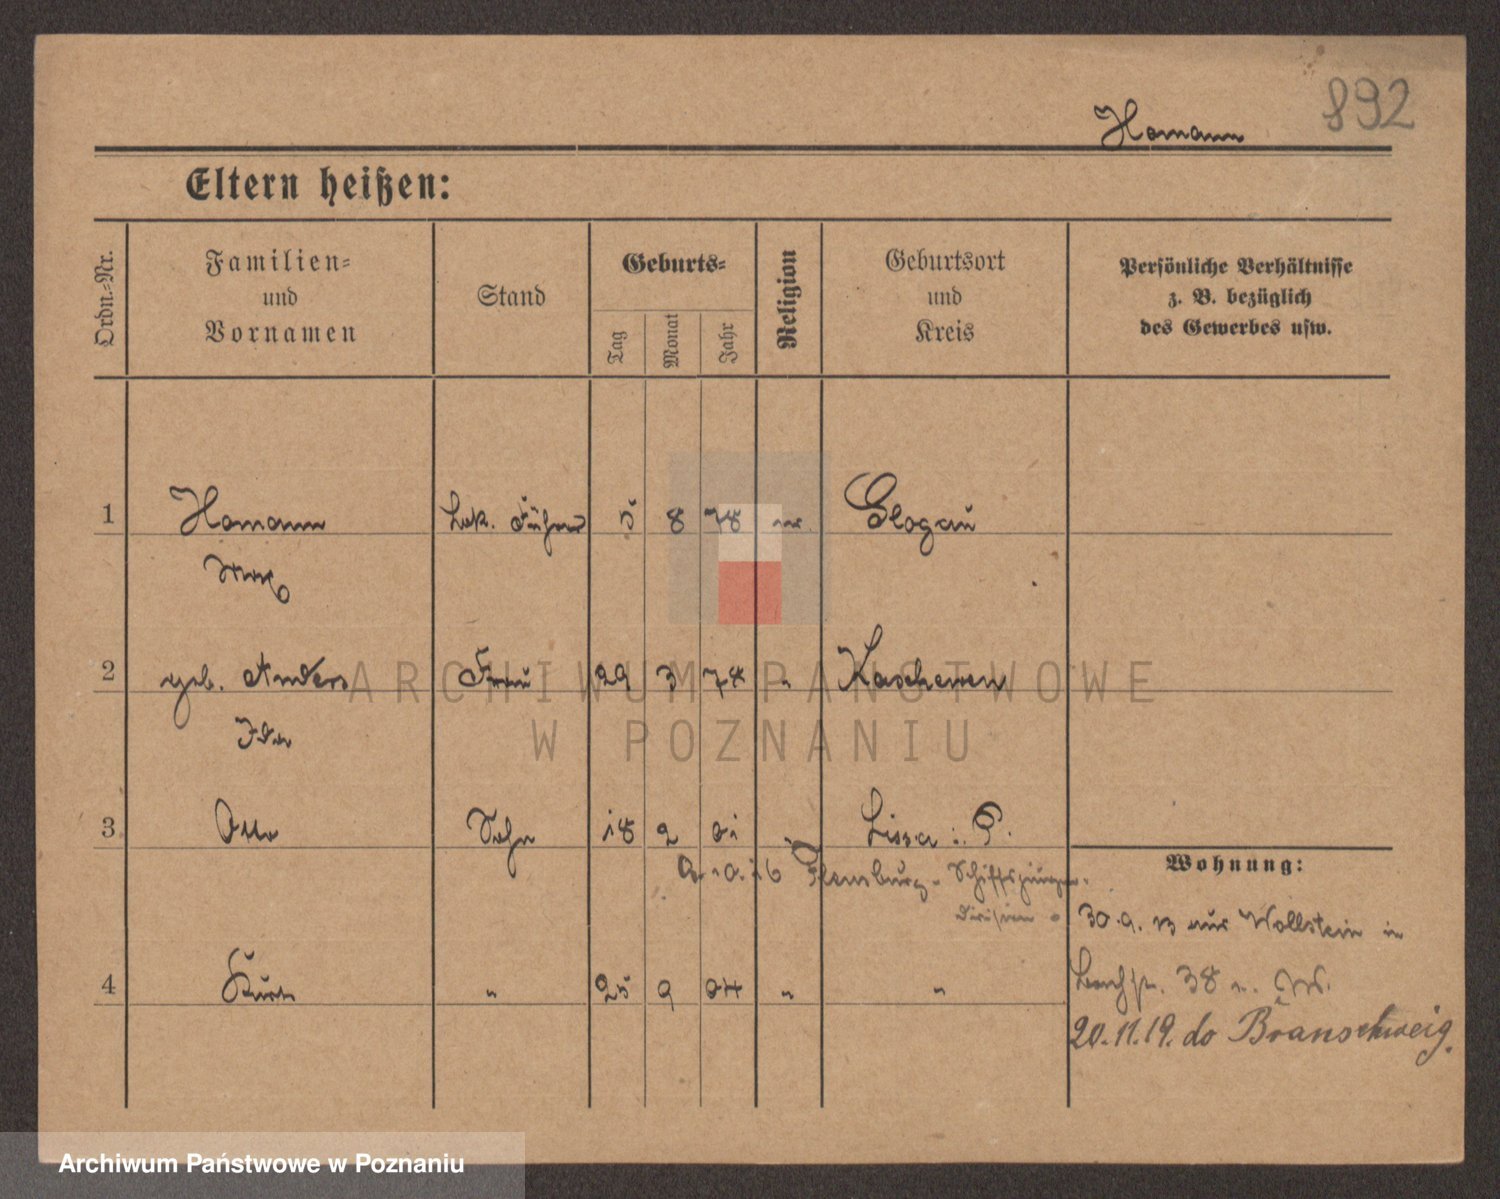 892
Homann
Eltern heißen:
Ordn.-Nr.
Familien-
und
Vornamen
Stand
Geburts-
Tag
Monat
Jahr
Religion
Geburtsort
und
Kreis
Persönliche Verhältnisse
z. B. bezüglich
des Gewerbes usw.
1 Homann Lok. Führer 5 8 78 Glogau
Max
2 geb. Anders Frau 29 3 74 " Kaschewen
Ida
3 Otto Sohn 18 2 01 " Lissa i. P.
Flensburg - Schiffsjungen-
Division
Wohnung:
30.9.13 aus Wollstein in
4 Kurt " 25 9 04 " "
38
20.11.19. do Branschweig.
ARCHIWUM PAŃSTWOWE
W POZNANIU
Archiwum Państwowe w Poznaniu